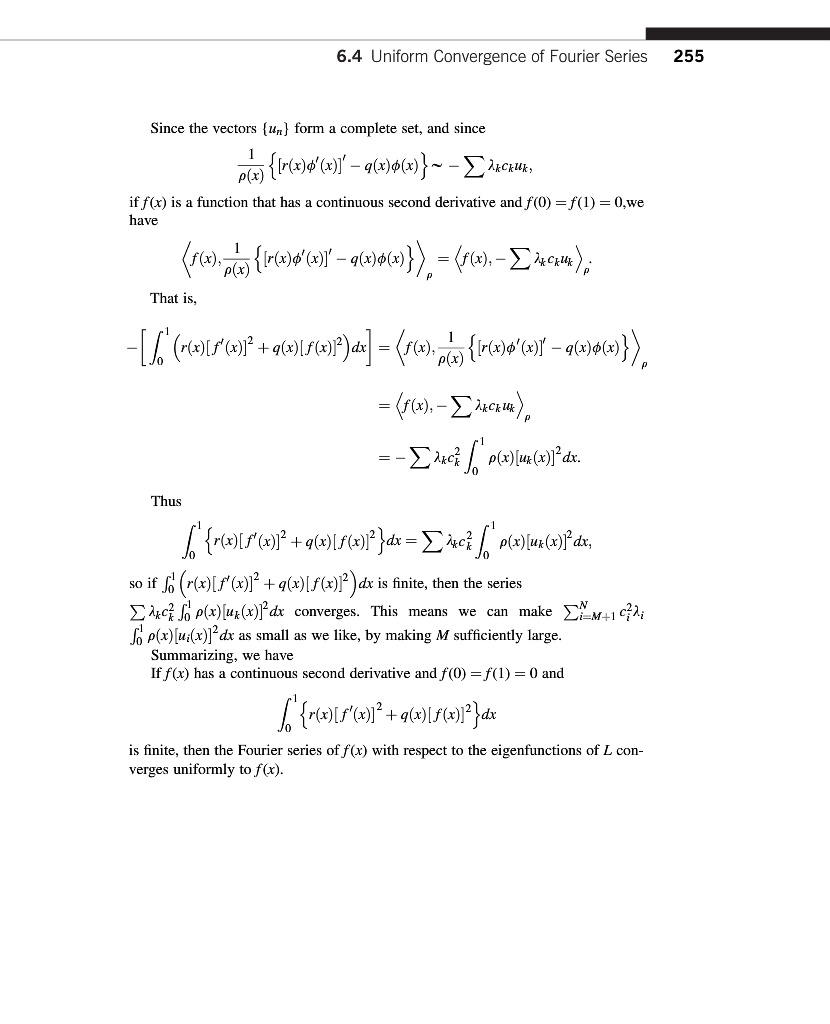 6.4 Uniform Convergence of Fourier Series 255
Since the vectors {uₙ} form a complete set, and since
1/ρ(x) {[r(x)ϕ′(x)]′ − q(x)ϕ(x)} ~ − ∑ λₖcₖuₖ,
if f(x) is a function that has a continuous second derivative and f(0) = f(1) = 0,we
have
⟨f(x), 1/ρ(x) {[r(x)ϕ′(x)]′ − q(x)ϕ(x)}⟩ᵨ = ⟨f(x), − ∑ λₖcₖuₖ⟩ᵨ.
That is,
−[∫₀¹ (r(x)[f′(x)]² + q(x)[f(x)]²)dx] = ⟨f(x), 1/ρ(x) {[r(x)ϕ′(x)]′ − q(x)ϕ(x)}⟩ᵨ
= ⟨f(x), − ∑ λₖcₖuₖ⟩ᵨ
= − ∑ λₖcₖ² ∫₀¹ ρ(x)[uₖ(x)]²dx.
Thus
∫₀¹ {r(x)[f′(x)]² + q(x)[f(x)]²}dx = ∑ λₖcₖ² ∫₀¹ ρ(x)[uₖ(x)]²dx,
so if ∫₀¹ (r(x)[f′(x)]² + q(x)[f(x)]²)dx is finite, then the series
∑ λₖcₖ² ∫₀¹ ρ(x)[uₖ(x)]²dx converges. This means we can make ∑ᵢ₌M₊₁ᴺ cᵢ²λᵢ
∫₀¹ ρ(x)[uᵢ(x)]²dx as small as we like, by making M sufficiently large.
Summarizing, we have
If f(x) has a continuous second derivative and f(0) = f(1) = 0 and
∫₀¹ {r(x)[f′(x)]² + q(x)[f(x)]²}dx
is finite, then the Fourier series of f(x) with respect to the eigenfunctions of L con-
verges uniformly to f(x).